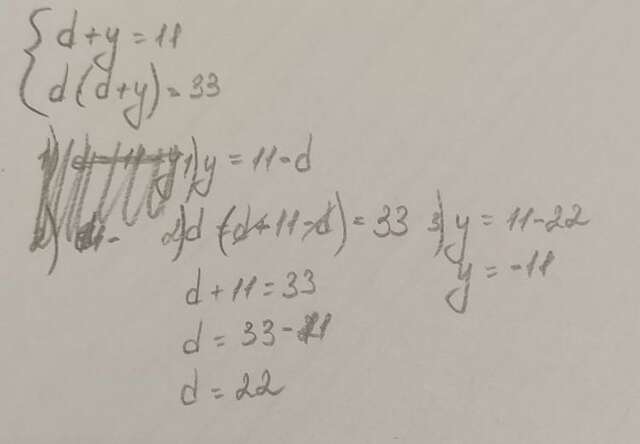 d+y=11
d(d+y)=33
1) y=11-d
2) d(d+11-d)=33
d+11=33
d=33-11
d=22
3) y=11-22
y=-11